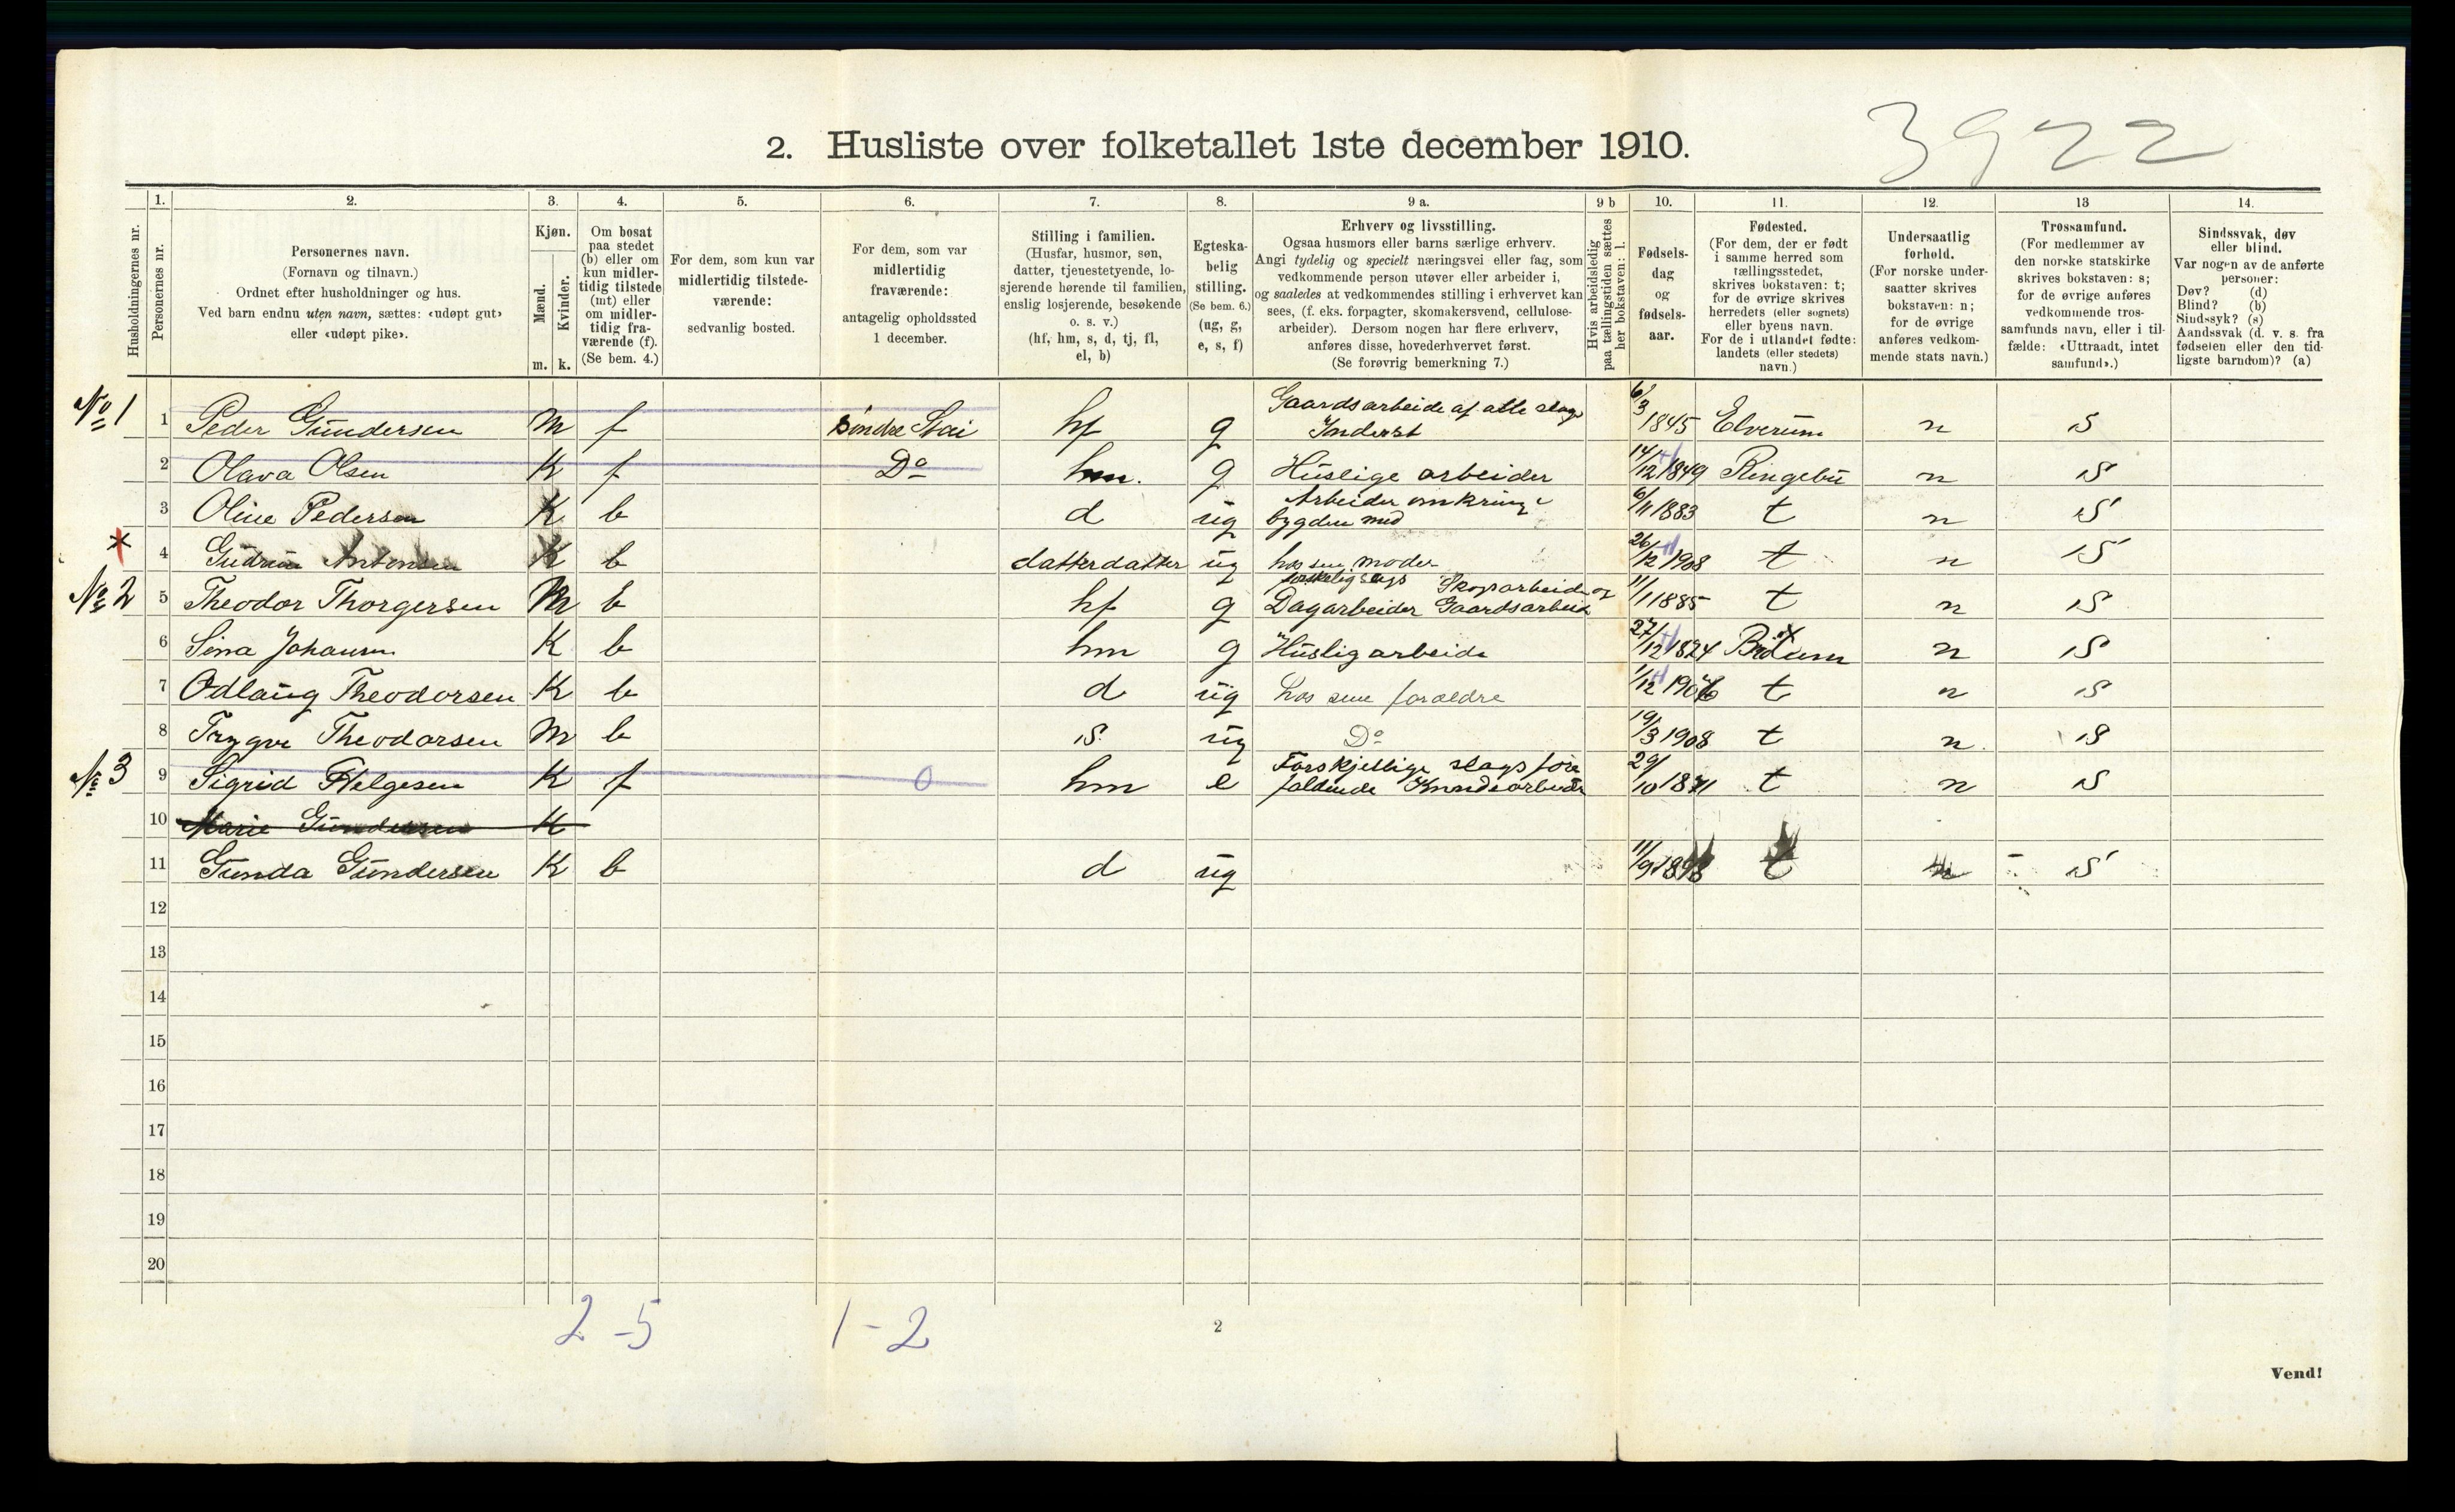 3922
2. Husliste over folketallet 1ste december 1910.
Husholdningernes nr.
1. Personernes nr.
2. Personernes navn. (Fornavn og tilnavn.) Ordnet efter husholdninger og hus. Ved barn endnu uten navn, sættes: «udøpt gut» eller «udøpt pike».
3. Kjøn. Mænd. m. Kvinder. k.
4. Om bosat paa stedet (b) eller om kun midler-tidig tilstede (mt) eller om midler-tidig fra-værende (f). (Se bem. 4.)
5. For dem, som kun var midlertidig tilstede-værende: sedvanlig bosted.
6. For dem, som var midlertidig fraværende: antagelig opholdssted 1 december.
7. Stilling i familien. (Husfar, husmor, søn, datter, tjenestetyende, lo-sjerende hørende til familien, enslig losjerende, besøkende o. s. v.) (hf, hm, s, d, tj, fl, el, b)
8. Egteska-belig stilling. (Se bem. 6.) (ug, g, e, s, f)
9 a. Erhverv og livsstilling. Ogsaa husmors eller barns særlige erhverv. Angi tydelig og specielt næringsvei eller fag, som vedkommende person utøver eller arbeider i, og saaledes at vedkommendes stilling i erhvervet kan sees, (f. eks. forpagter, skomakersvend, cellulose-arbeider). Dersom nogen har flere erhverv, anføres disse, hovederhvervet først. (Se forøvrig bemerkning 7.)
9 b Hvis arbeidsledig paa tællingstiden sættes her bokstaven: l.
10. Fødsels-dag og fødsels-aar.
11. Fødested. (For dem, der er født i samme herred som tællingsstedet, skrives bokstaven: t; for de øvrige skrives herredets (eller sognets) eller byens navn. For de i utlandet fødte: landets (eller stedets) navn.)
12. Undersaatlig forhold. (For norske under-saatter skrives bokstaven: n; for de øvrige anføres vedkom-mende stats navn.)
13 Trossamfund. (For medlemmer av den norske statskirke skrives bokstaven: s; for de øvrige anføres vedkommende tros-samfunds navn, eller i til-fælde: «Uttraadt, intet samfund».)
14. Sindssvak, døv eller blind. Var nogen av de anførte personer: Døv? (d) Blind? (b) Sindssyk? (s) Aandssvak (d. v. s. fra fødselen eller den tid-ligste barndom)? (a)
No 1 1 Peder Gundersen M f Søndre Stai hf g Gaardsarbeide af alle slags Inderst 6/3 1845 Elverum n S
2 Olava Olsen K f Do hm. g Huslige arbeider 14/12 1849 Ringebu n S
3 Oline Pedersen K b d ug Arbeider omkring i bygden med 6/11 1883 t n S
x 4 Gudrun Antonsen K b datterdatter ug hos sin moder 26/12 1908 t n S
No 2 5 Theodor Thorgersen M b hf g forskelig slags Skogsarbeide og Dagarbeider Gaardsarbeide 11/1 1885 t n S
6 Sina Johansen K b hm g Huslig arbeide 27/12 1874 n S
7 Odlaug Theodorsen K b d ug hos sine foraeldre 1/12 1906 t n S
8 Trygve Theodorsen M b S ug Do 19/3 1908 t n. S
No 3 9 Sigrid Helgesen K f 0 hm e Forskjellige slags fore faldende Kvindearbeide 29/10 1871 t n S
10 Marie Gundersen K
11 Gunda Gundersen K b d ug 11/9 1898 t n S
12
13
14
15
16
17
18
19
20
2 - 5 1 - 2
2
Vend!